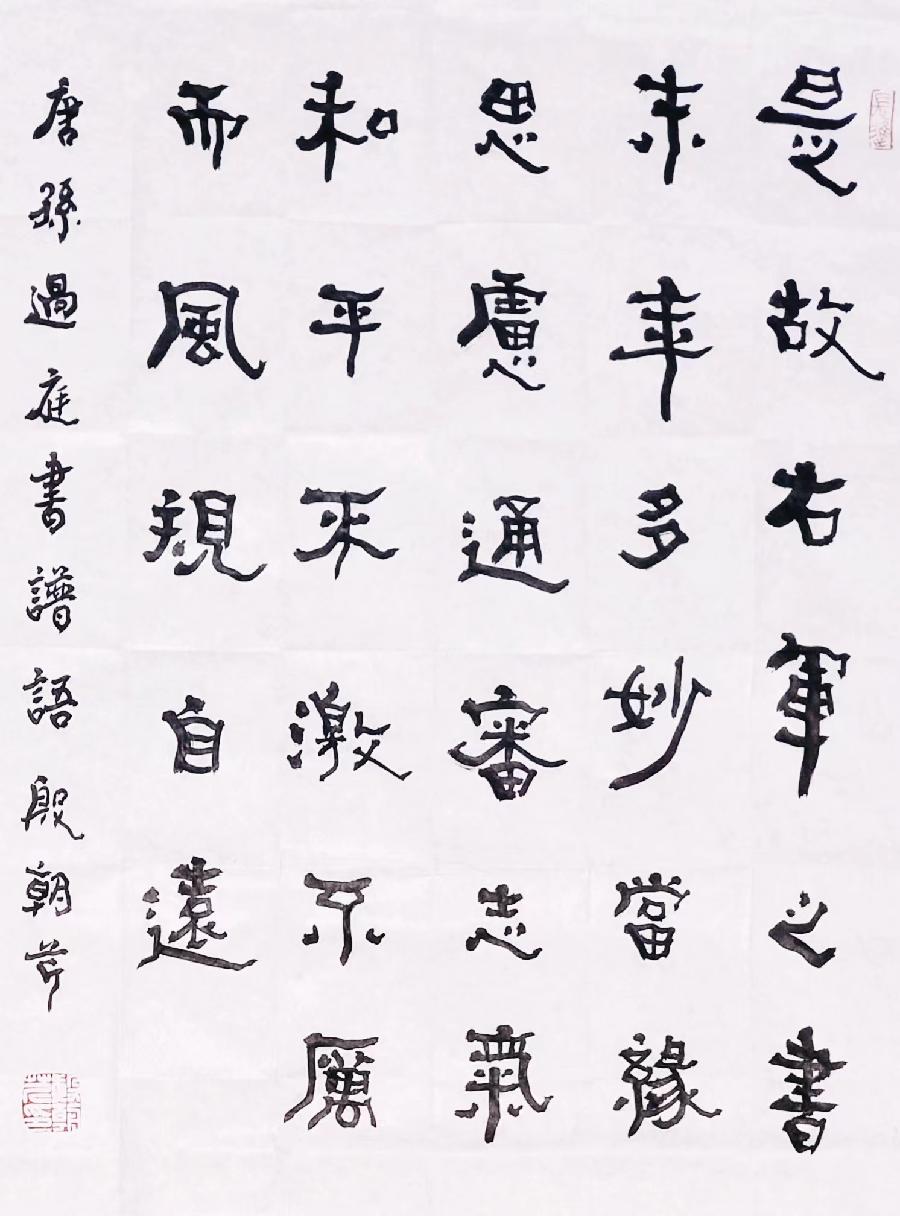 是故右軍之書
末年多妙當緣
思慮通審志氣
和平不激不厲
而風規自遠
唐孫過庭書譜語殷朝芹